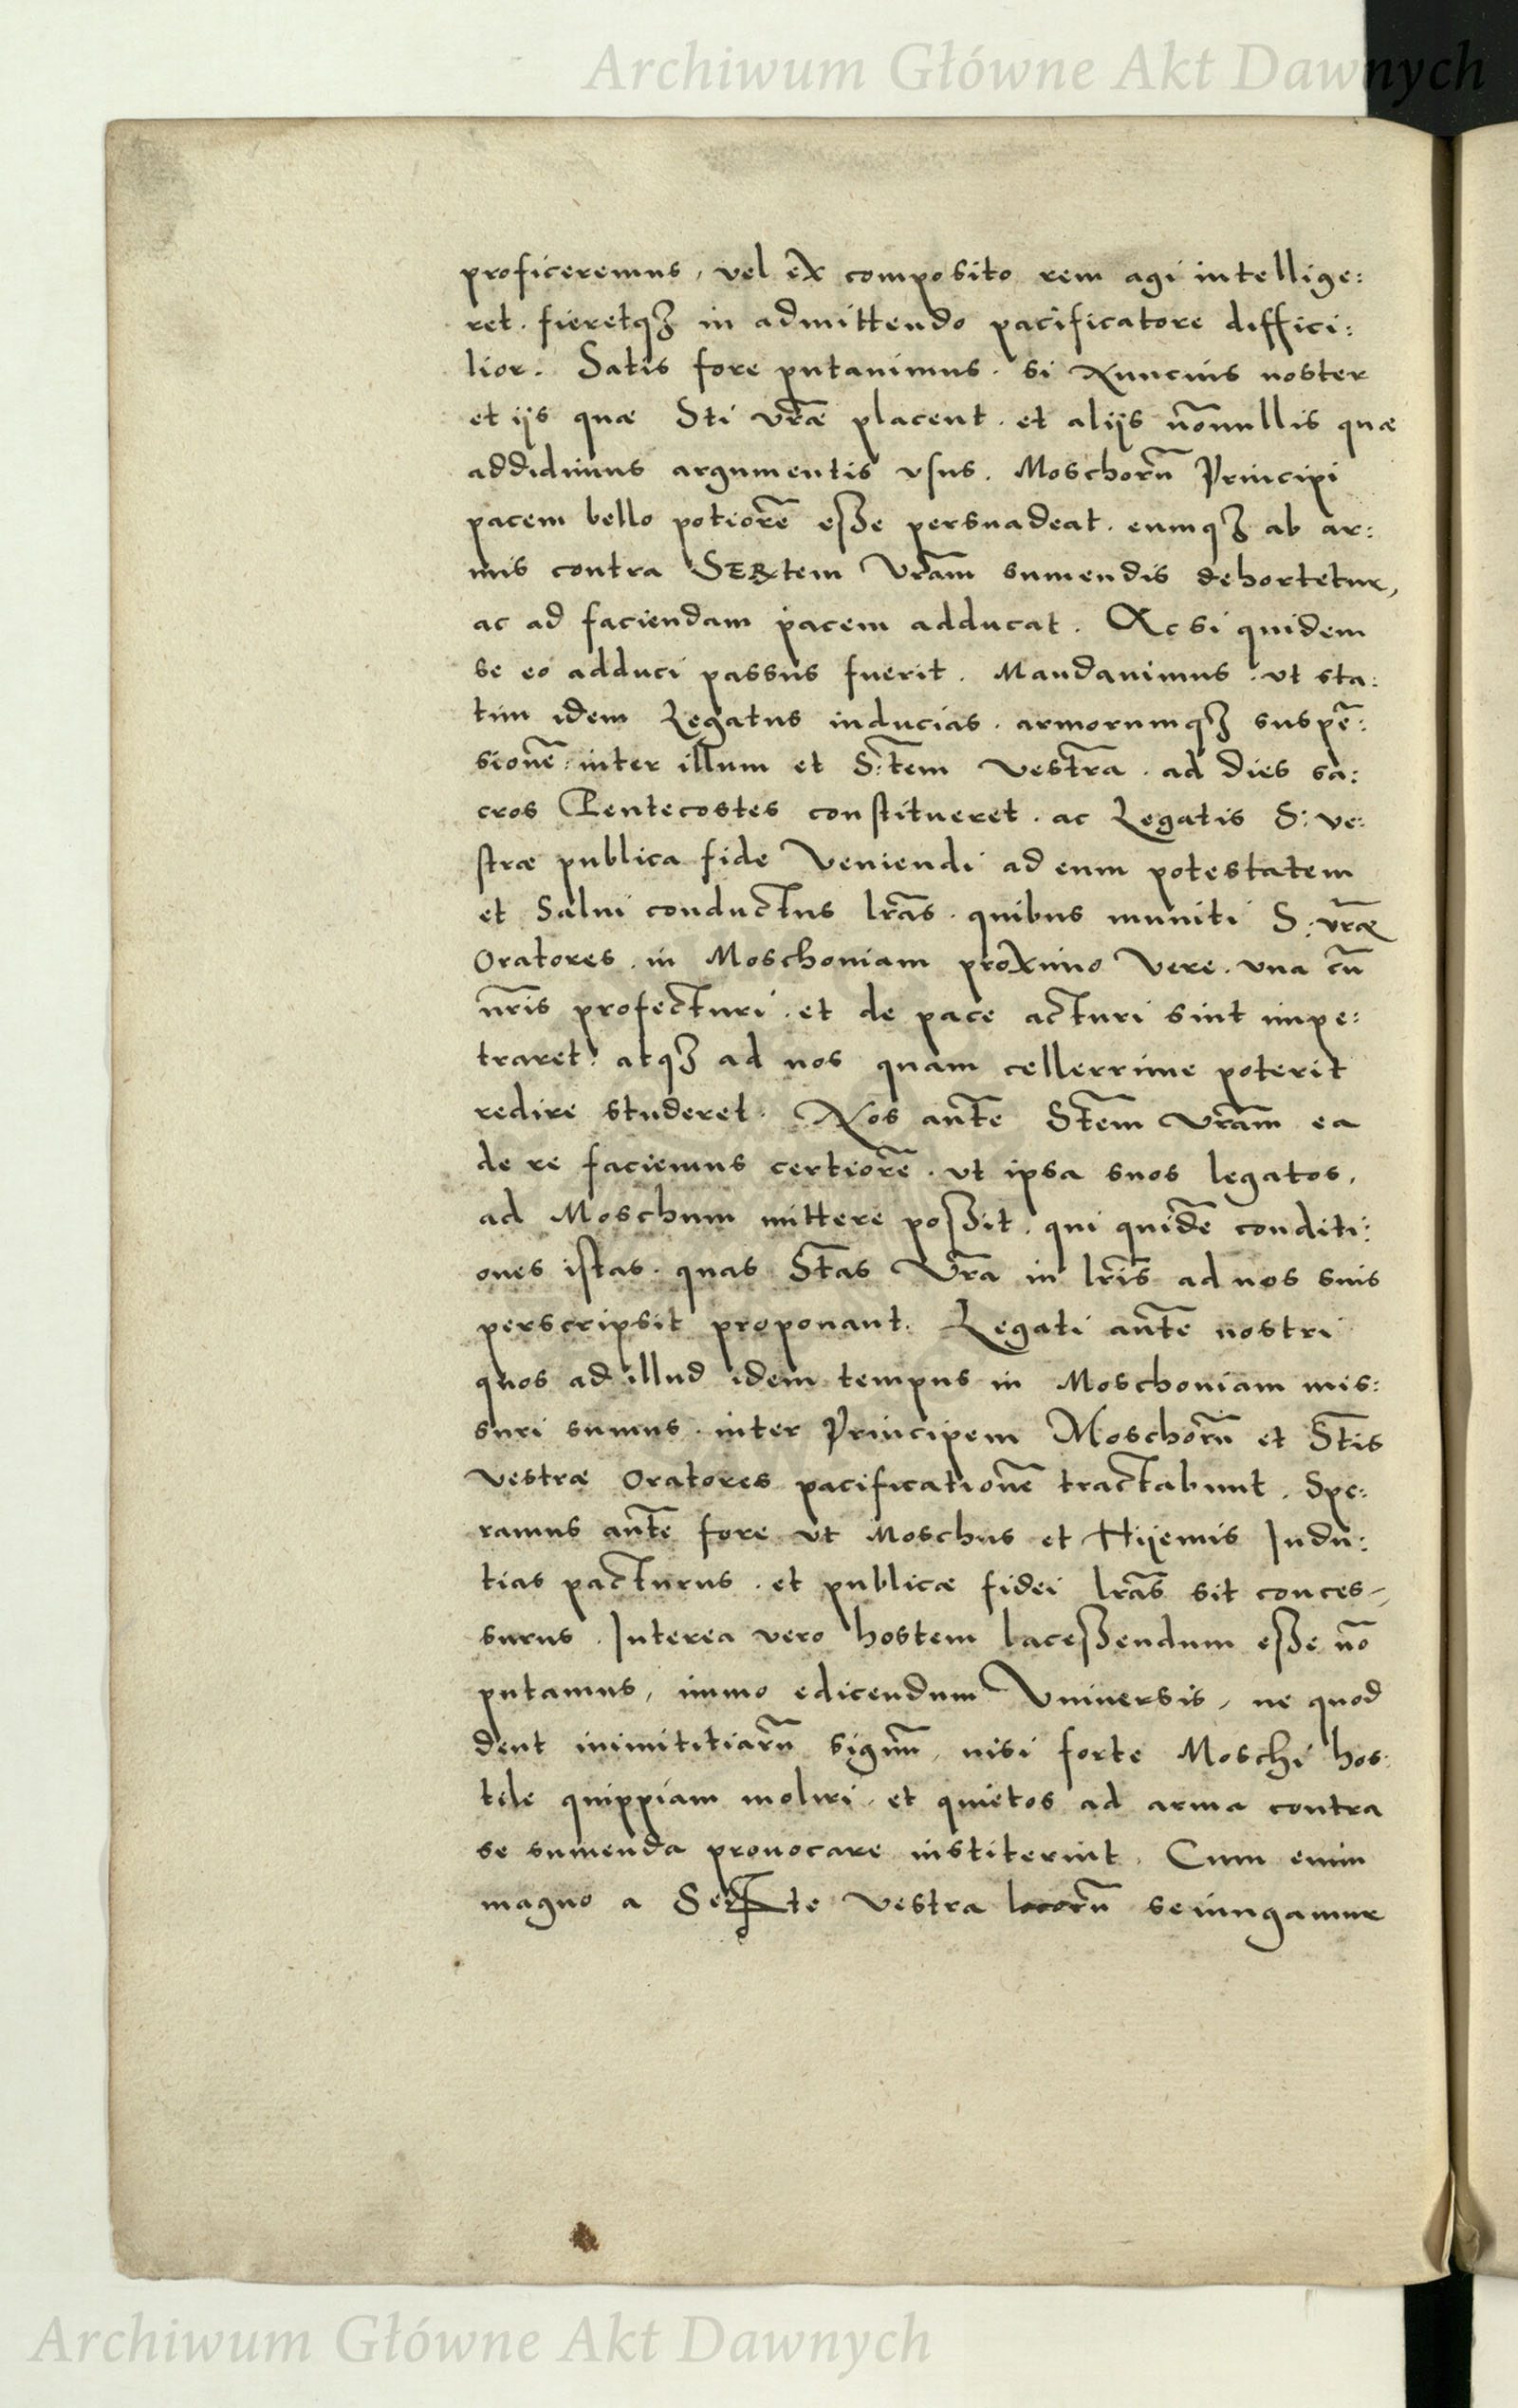 Archiwum Główne Akt Dawnych
proficeremus, vel ex composito rem agi intellige:
ret. fieretqꝫ in admittendo pacificatore diffici:
lior. Satis fore putauimus. si Nuncius noster
et ijs quæ Sti vr̃æ placent. et alijs nõnullis quæ
addidimus argumentis vsus. Moschorũ Principi
pacem bello potiorẽ esse persuadeat. eumqꝫ ab ar:
mis contra SERtem Vr̃am sumendis dehortetur,
ac ad faciendam pacem adducat. Ac si quidem
se eo adduci passus fuerit. Mandauimus. ut sta:
tim idem Legatus inducias. armorumqꝫ suspẽ:
sionẽ. inter illum et S:tem Vestrã. ad dies sa:
cros Pentecostes constitueret. ac Legatis S: ve:
stræ publica fide Veniendi ad eum potestatem
et Salui conductus lr̃as. quibus muniti S: vr̃æ
Oratores. in Moschouiam proximo Vere. vna cũ
nr̃is profecturi. et de pace acturi sint impe:
traret. atqꝫ ad nos quam cellerrime poterit
redire studeret. Nos aũte S̃tem Vr̃am ea
de re faciemus certiorẽ. ut ipsa suos legatos,
ad Moschum mittere possit. qui quidẽ conditi:
ones istas. quas S̃tas Vr̃a in lr̃is ad nos suis
perscripsit proponant. Legati aũte nostri
quos ad illud idem tempus in Moschouiam mis:
suri sumus. inter Principem Moschorũ et S̃tis
Vestræ Oratores pacificationẽ tractabunt. Spe:
ramus aũte fore ut Moschus et Hijemis Indu:
tias pacturus. et publicæ fidei lr̃as sit conces-
surus. Interea vero hostem lacessendum esse nõ
putamus, immo edicendum Vniuersis, ne quod
dent inimititiarũ signũ, nisi forte Moschi hos:
tile quippiam moliri. et quietos ad arma contra
se sumenda prouocare institerint. Cum enim
magno a Serte Vestra locorũ seiungamur
Archiwum Główne Akt Dawnych